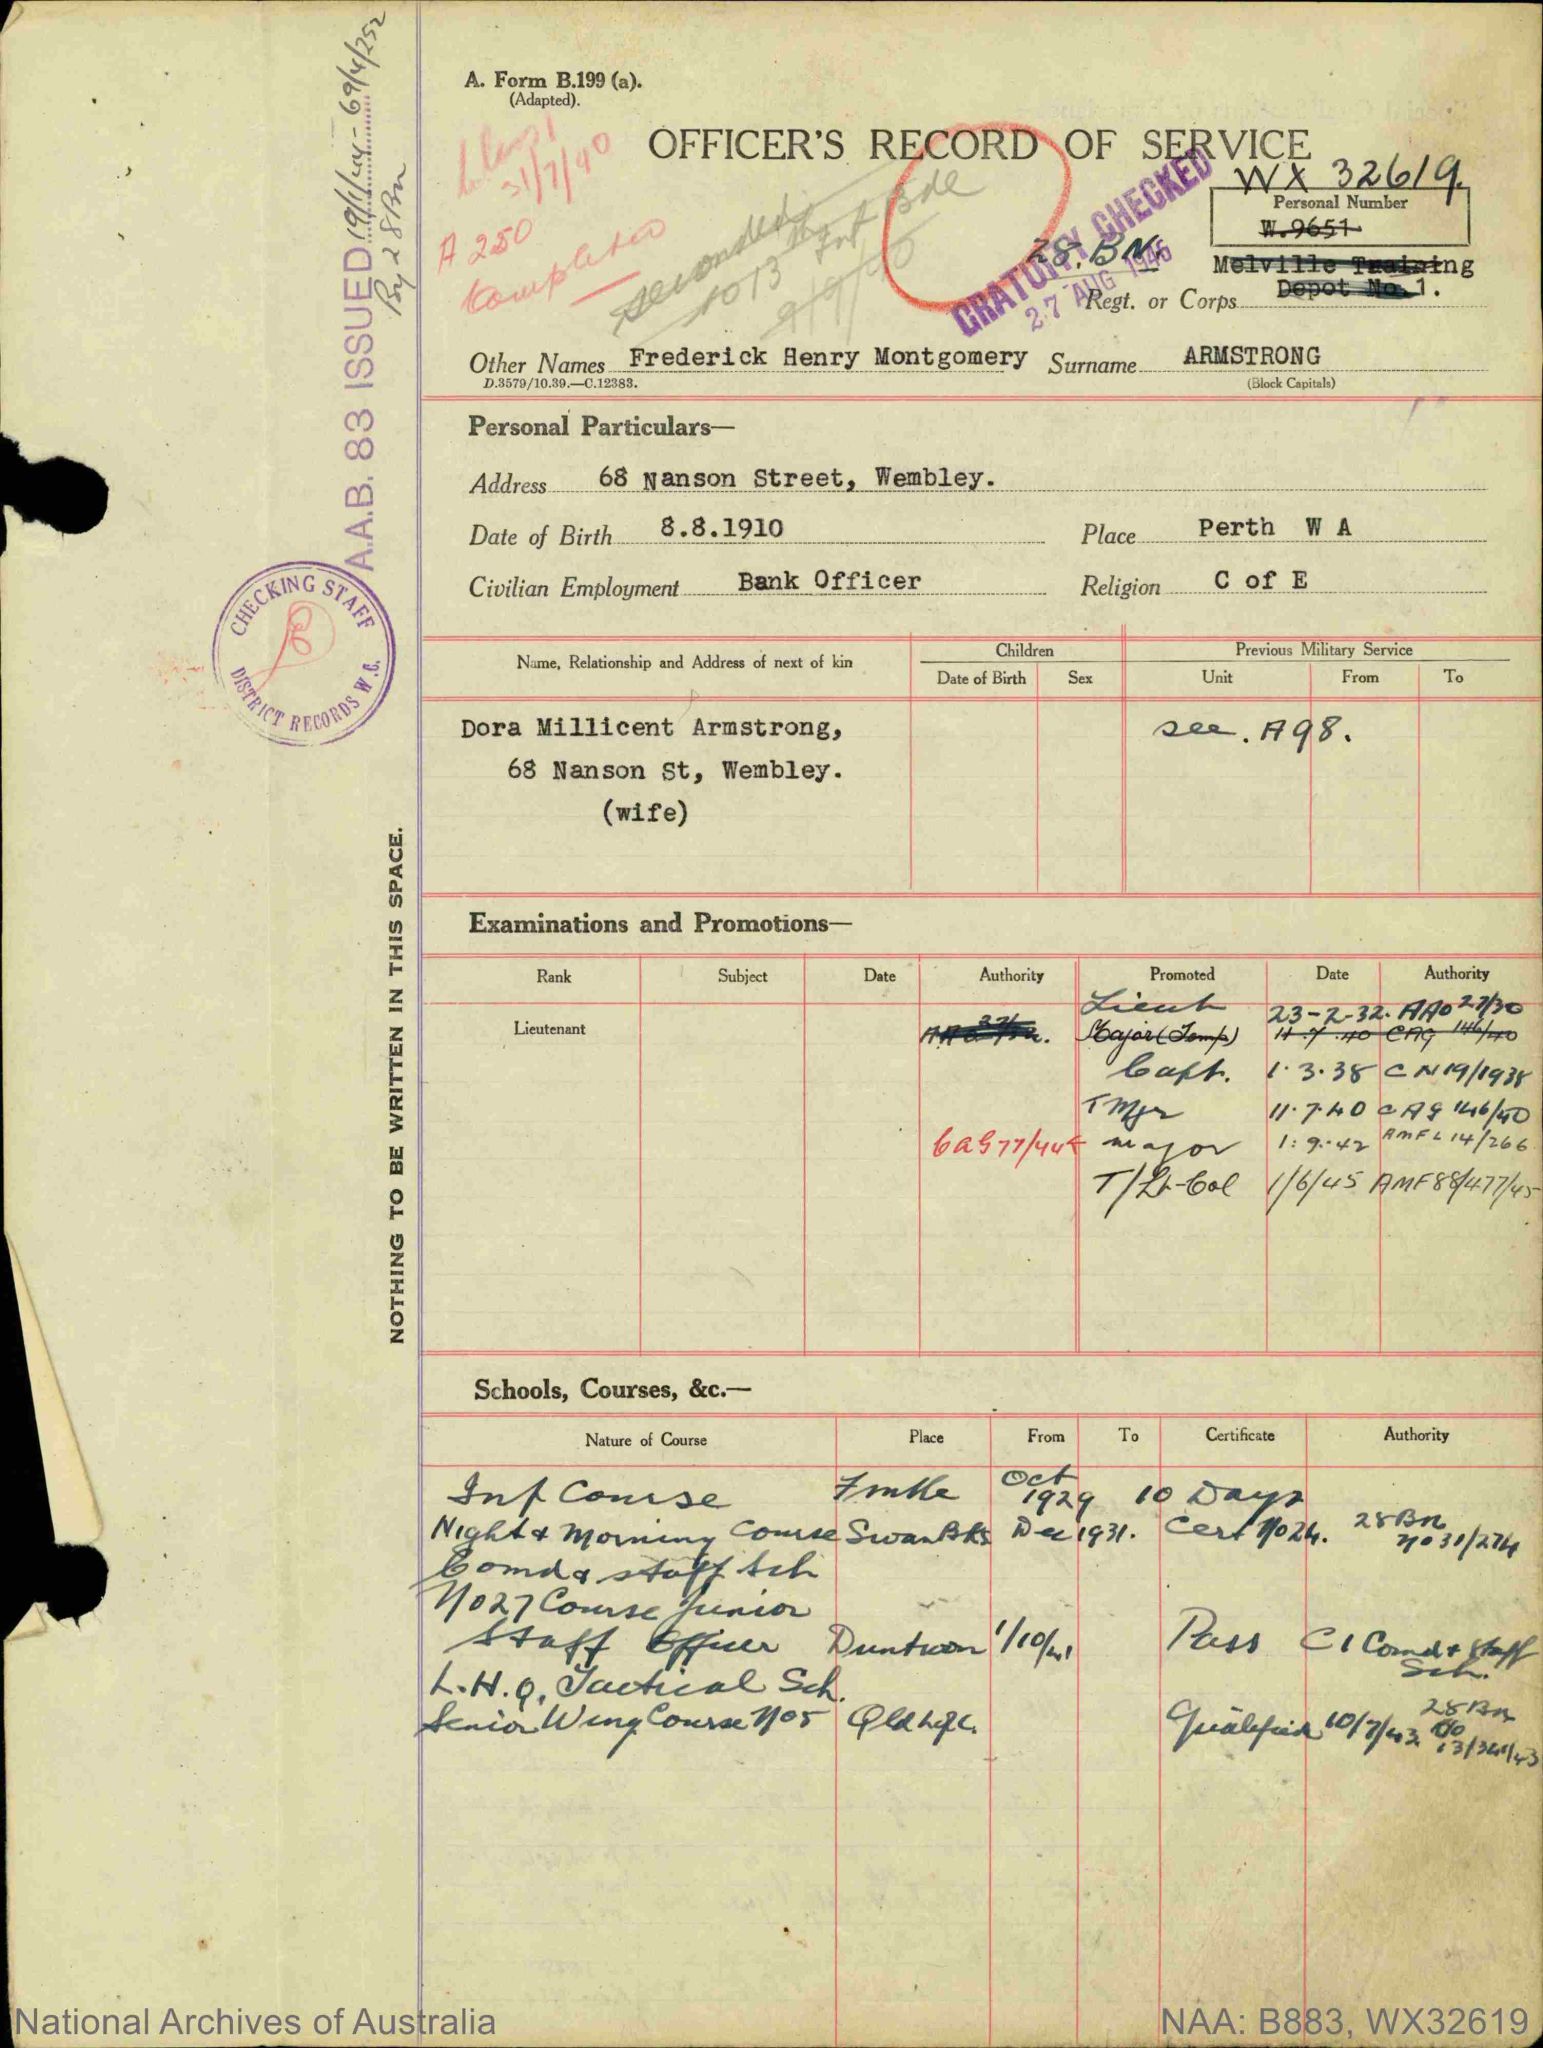 A. Form B.199 (a).
(Adapted).
OFFICER'S RECORD OF SERVICE
31/7/40
A 250
Completed
seconded
to 13 Inf Bde
9/9/40
GRATUITY CHECKED
27 AUG 1946
WX 32619.
Personal Number
W.9651
28.BN.
Melville Training
Depot No.1.
Regt. or Corps
Other Names Frederick Henry Montgomery Surname ARMSTRONG
D.3579/10.39.—C.12383.
(Block Capitals)
A.A.B. 83 ISSUED 19/1/44 - 69/4/252
By 28 Bn
CHECKING STAFF
DISTRICT RECORDS W.C.
NOTHING TO BE WRITTEN IN THIS SPACE.
Personal Particulars—
Address 68 Nanson Street, Wembley.
Date of Birth 8.8.1910 Place Perth W A
Civilian Employment Bank Officer Religion C of E
Name, Relationship and Address of next of kin Children Previous Military Service
Date of Birth Sex Unit From To
Dora Millicent Armstrong, see. A98.
68 Nanson St, Wembley.
(wife)
Examinations and Promotions—
Rank Subject Date Authority Promoted Date Authority
Lieut 23-2-32. AAO 27/30
Lieutenant Major (Temp) 11.7.40 CAG 146/40
Capt. 1.3.38 C N 19/1938
T Mjr 11.7.40 C A G 146/40
CAG 77/44 major 1.9.42 AMF L 14/266
T/Lt-Col 1/6/45 AMF 88/477/45
Schools, Courses, &c.—
Nature of Course Place From To Certificate Authority
Inf Course Fmtle Oct 1929 10 Days
Night & Morning Course Swan Bks Dec 1931. Cert No 24. 28 Bn No 31/274
Comd & Staff Sch
No 27 Course Junior
Staff Officer Duntroon 1/10/41 Pass C 1 Comd & Staff Sch.
L.H.Q. Tactical Sch.
Senior Wing Course No 5 Qualified 10/7/43 28 Bn
13/341/43
National Archives of Australia
NAA: B883, WX32619